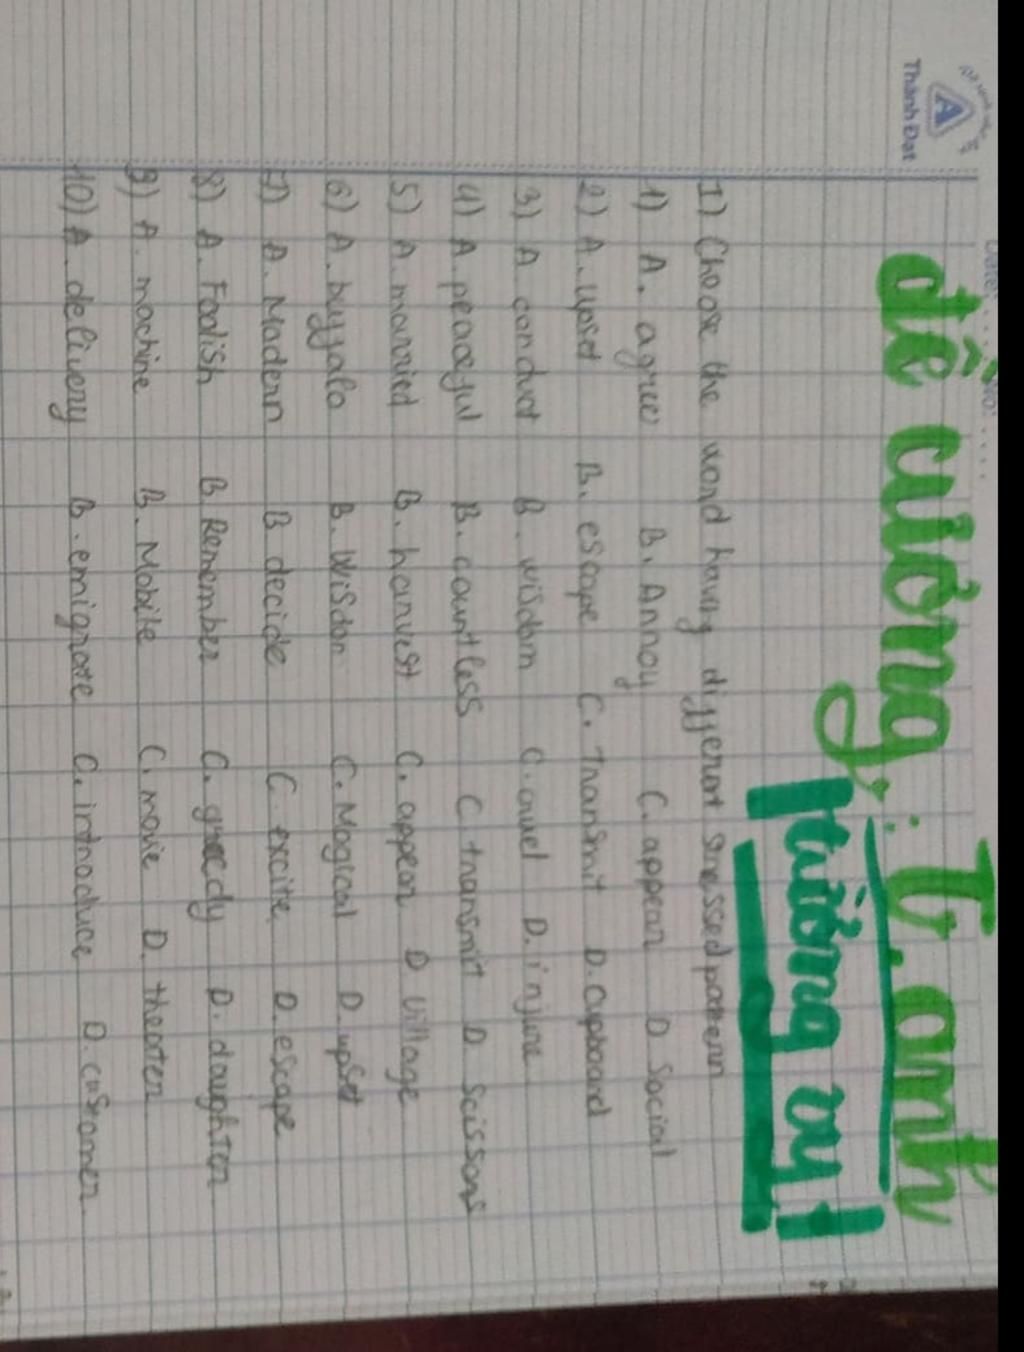 Thành Đạt
Date: No:
đề cương: T.anh
tường vy
I) Choose the word having different stressed pattern
1) A. agree B. Annoy C. appear D Social
2) A. upset B. escape C. transmit D. cupboard
3) A conduct B. wisdom C. cruel D. injure
4) A. peaceful B. countless C transmit D scissors
5) A. married B. harvest C. appear D Village
6) A. buffalo B. Wisdom C. Magical D. upset
7) A. Modern B decide C excite D. escape
8) A. Foolish B Remember C. greedy D. daughter
9) A. machine B. Mobile C. movie D. theater
10) A. delivery B. emigrate C. introduce D. customer